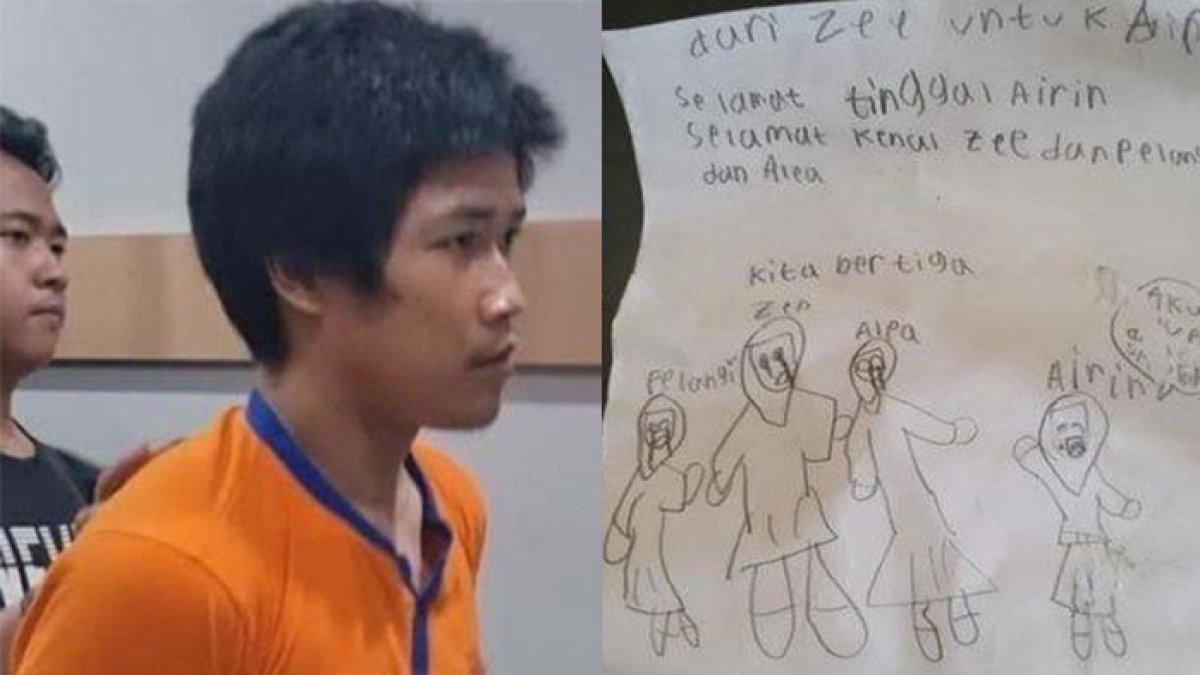 dari Zee untuk
Selamat tinggal Airin
Selamat kenal Zee dan pelangi
dan Alea
kita bertiga
Zee
Alea
Pelangi
Airin
Aku